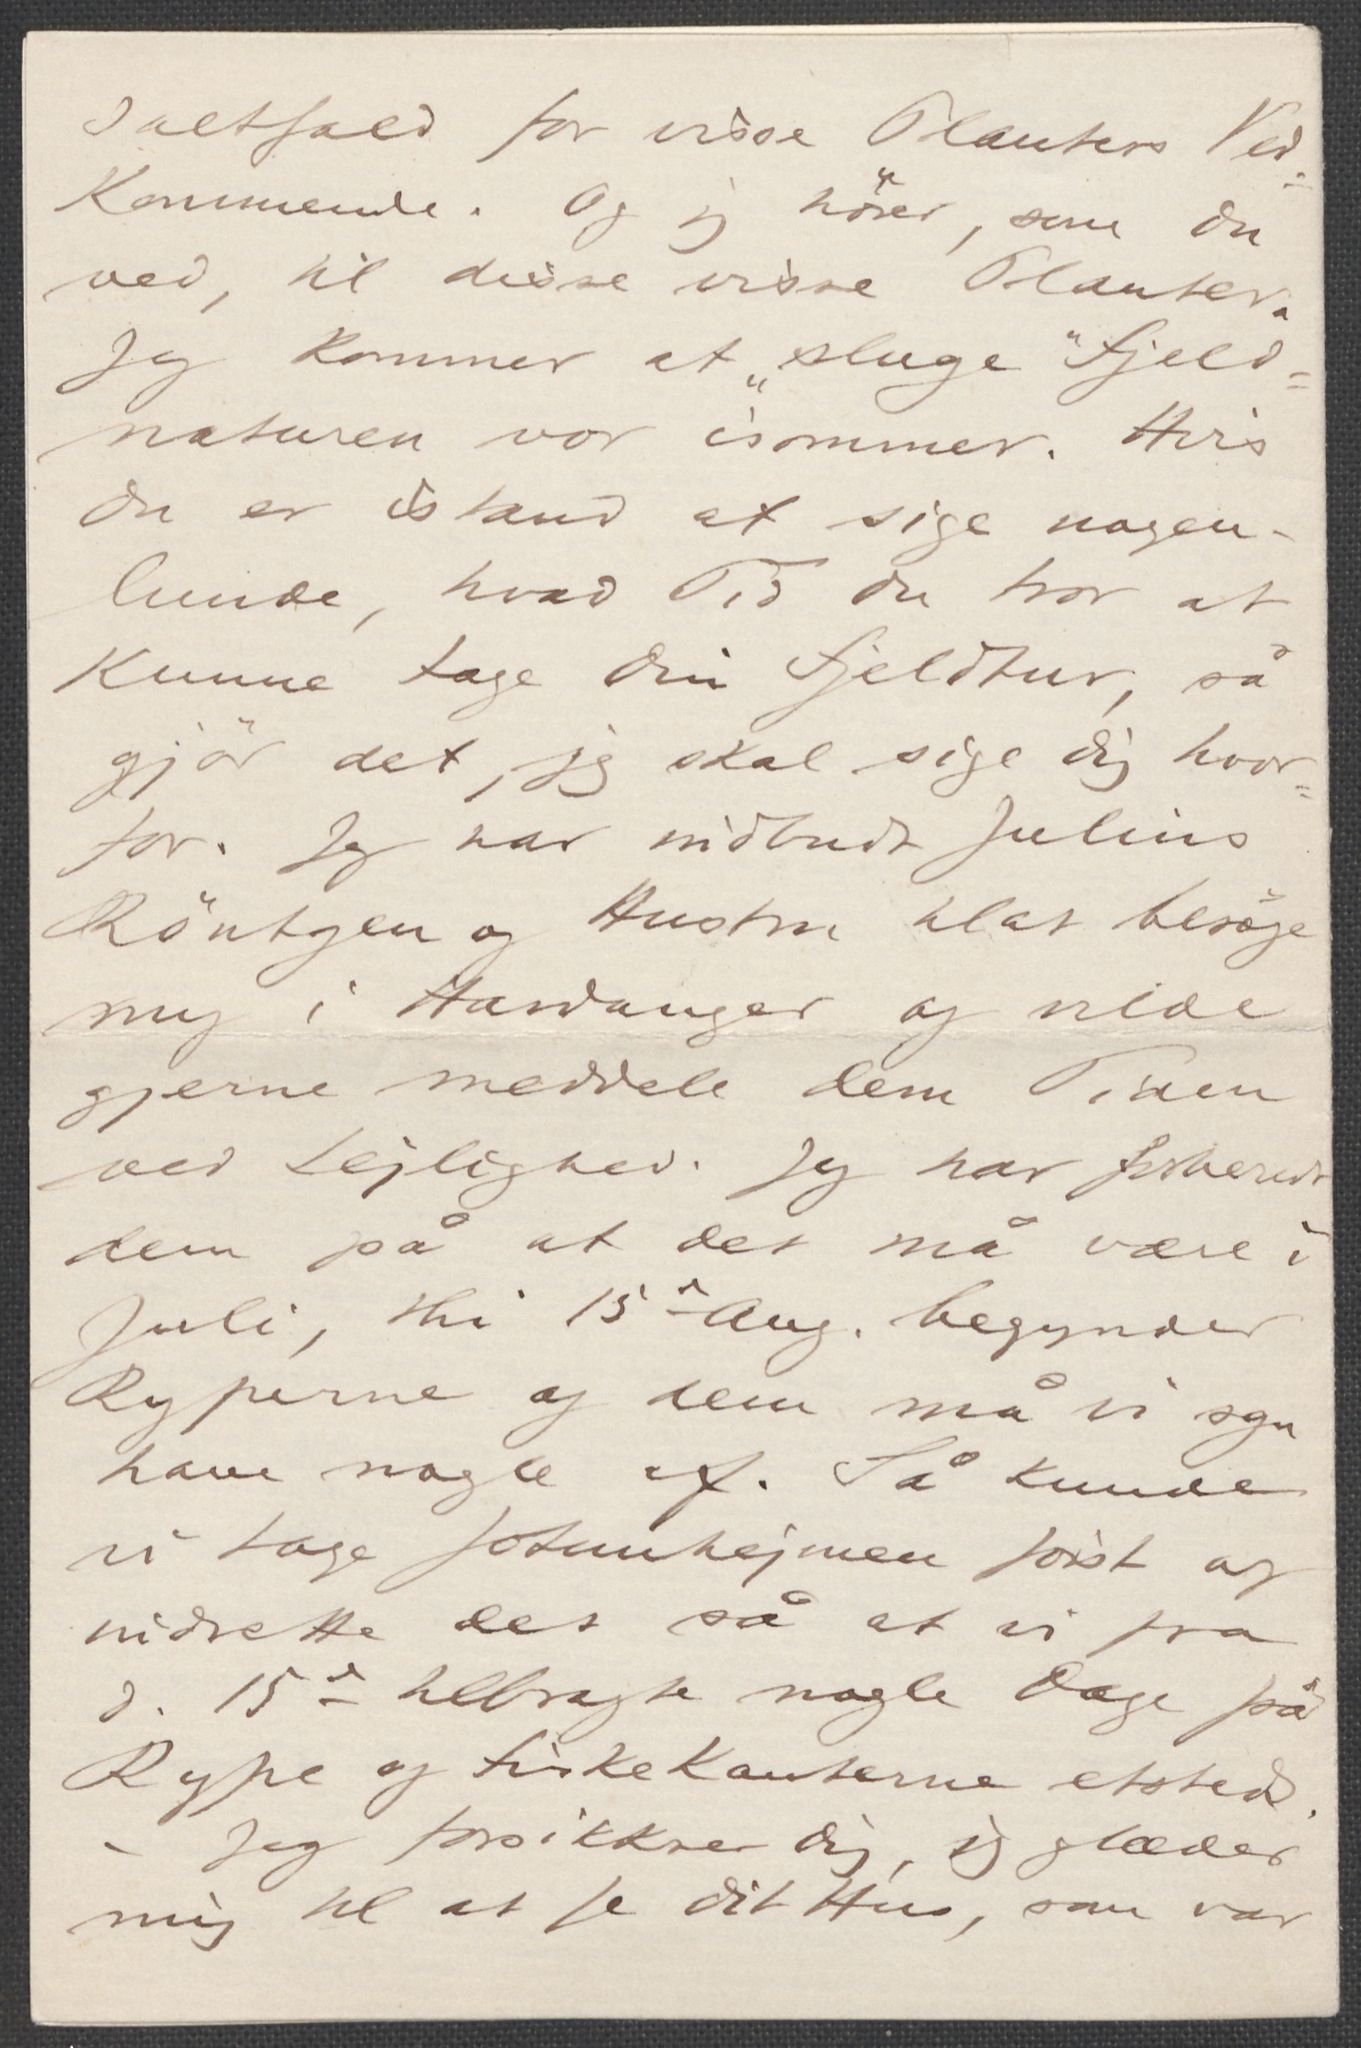 Ialtfald for visse Planters Ved=
kommende. Og jeg hörer, som du
ved, til disse visse Planter.
Jeg kommer at „sluge" Fjeld=
naturen vor isommer. Hvis
du er istand at sige nogen-
lunde, hvad Tid du tror at
kunne tage din Fjeldtur, så
gjör det, jeg skal sige dig hvor=
for. Jeg har indbudt Julius
Röntgen og Hustru til at besöge
mig i Hardanger og vilde
gjerne meddele dem Tiden
ved Lejlighed. Jeg har forberedt
dem på at det må være i
Juli, thi 15de Aug. begynder
Ryperne og dem må vi sgu
have nogle af. Så kunde
vi tage Jotunhejmen först og
indrette det så at vi fra
d. 15de tilbragte nogle Dage på
Rype og Fiskekanterne etsted.
- Jeg forsikkrer dig, jeg glæder
mig til at se dit Hus, som var